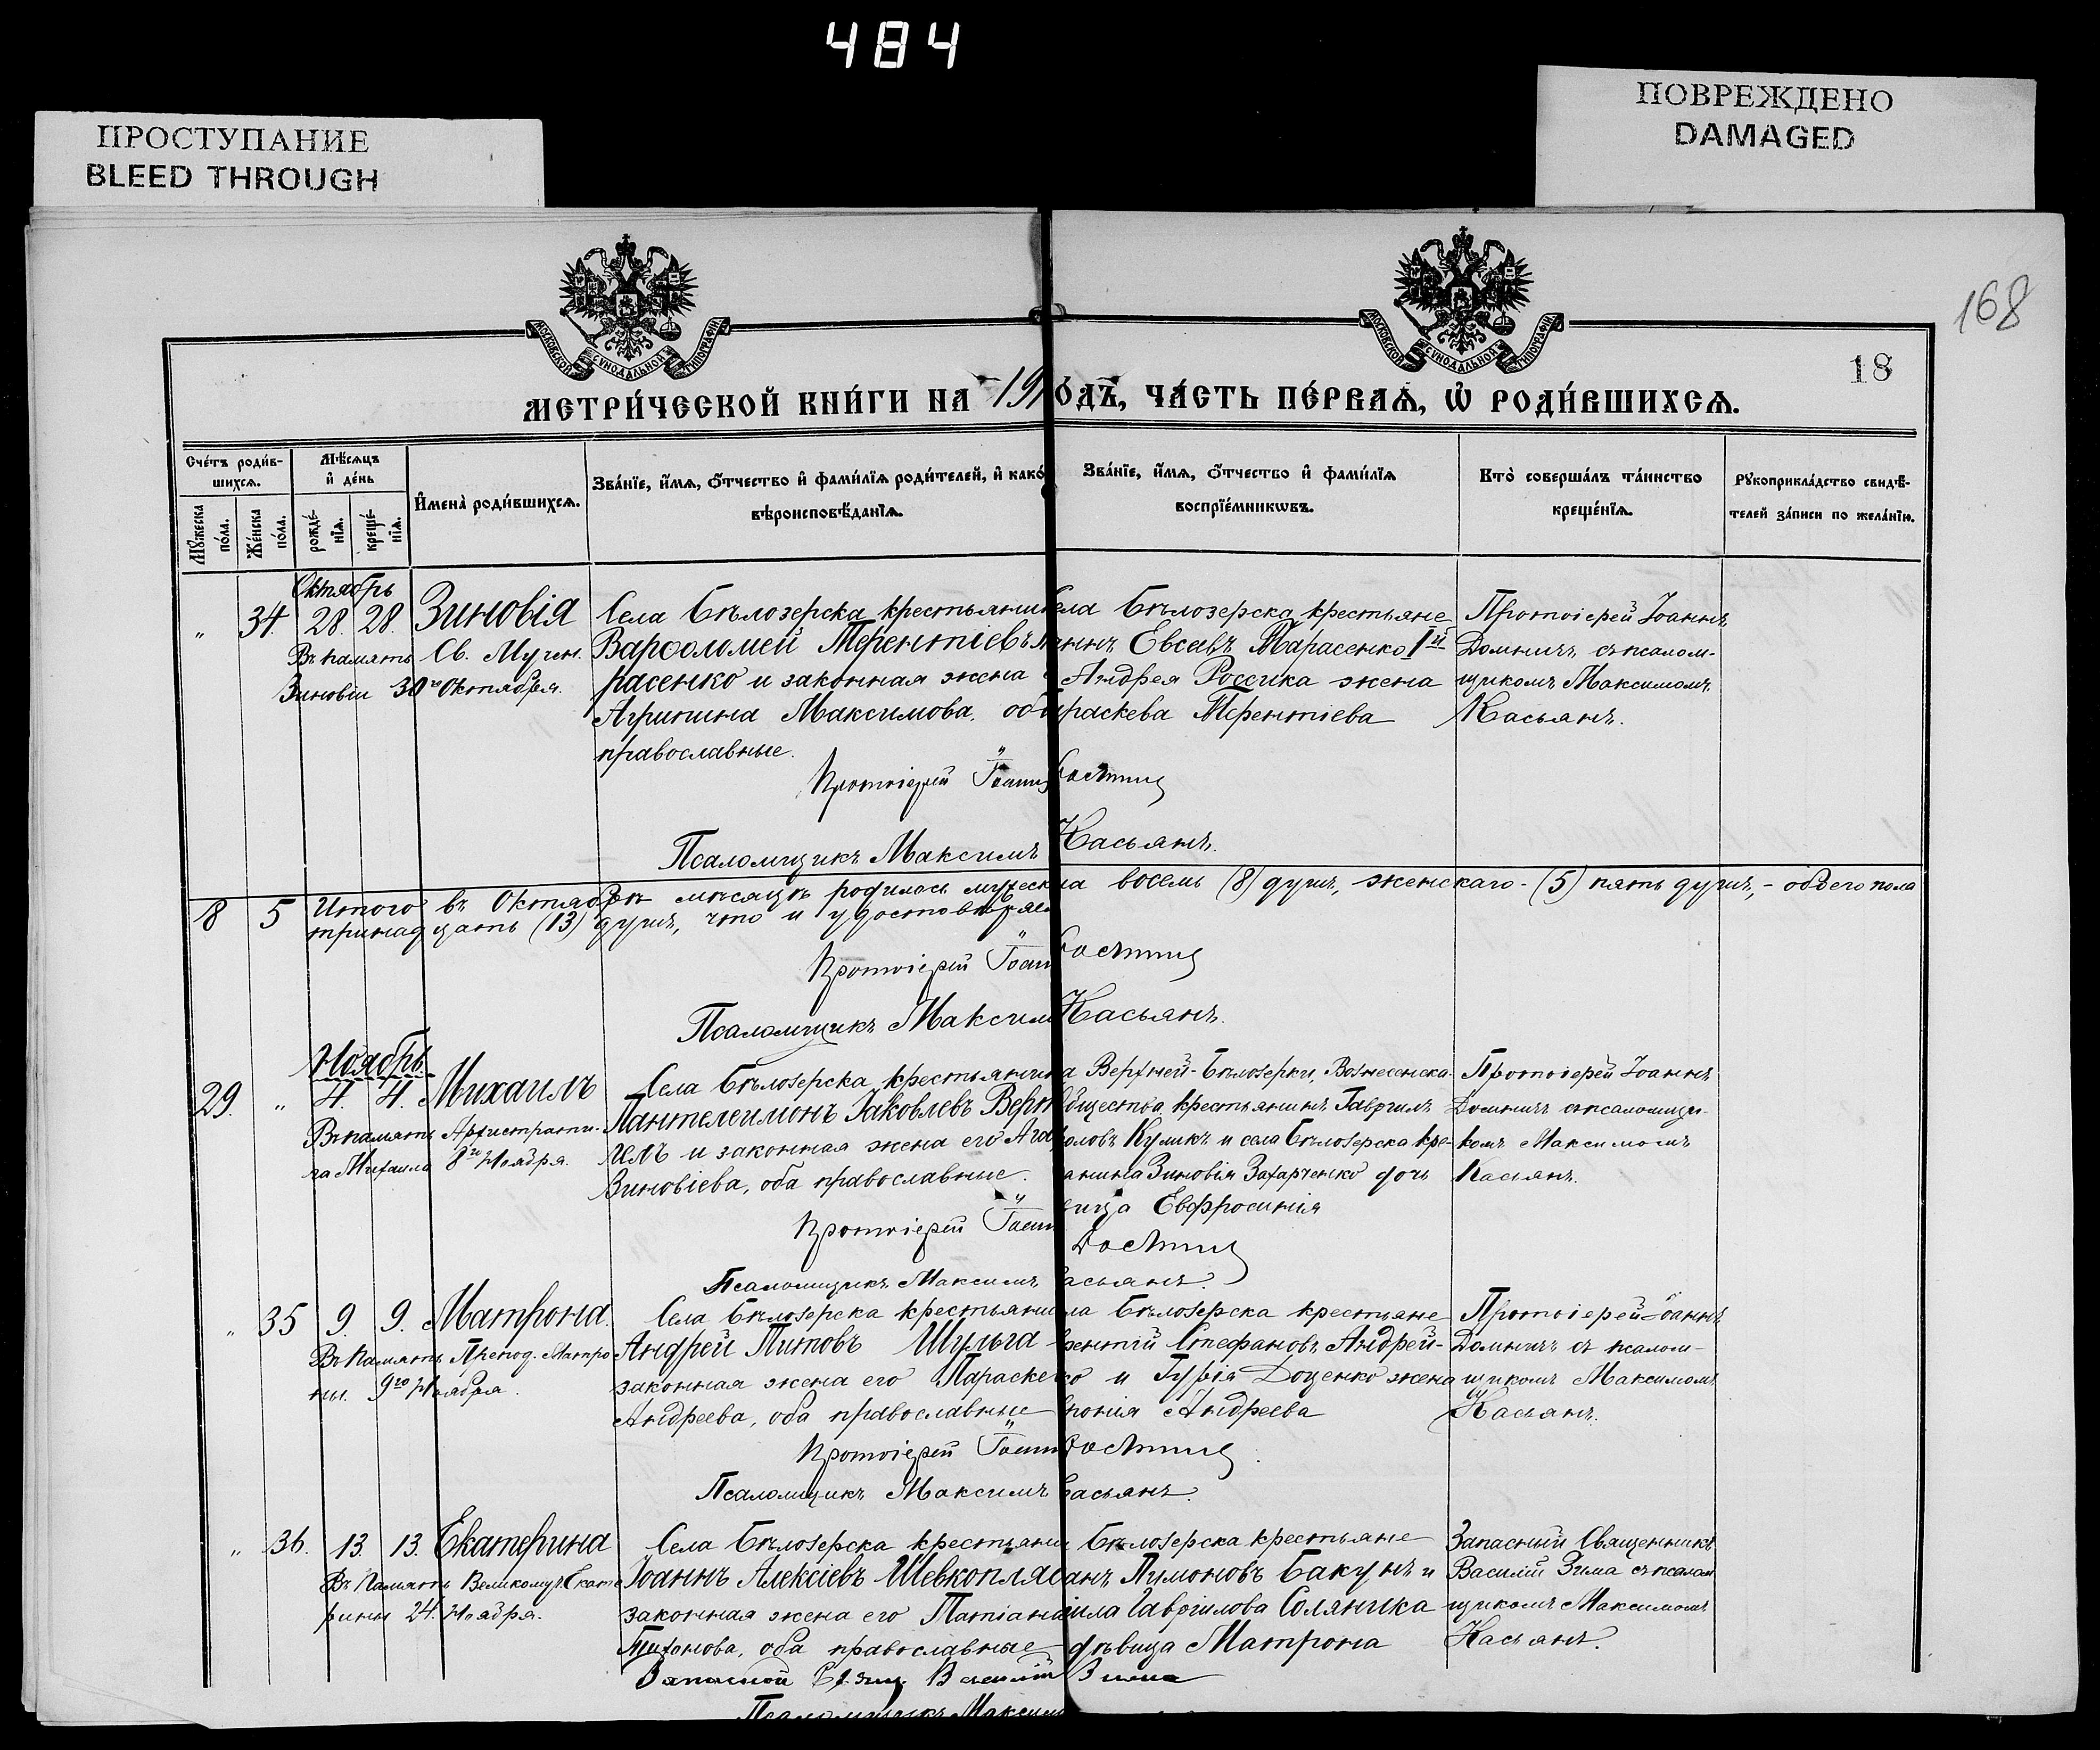 484
ПРОСТУПАНИЕ
BLEED THROUGH
ПОВРЕЖДЕНО
DAMAGED
168
18
МОСКОВСКОЙ СѴНОДАЛЬНОЙ ТИПОГРАФІИ
МОСКОВСКОЙ СѴНОДАЛЬНОЙ ТИПОГРАФІИ
МЕТРИ́ЧЕСКОЙ КНИ́ГИ НА 19 ОДЪ, ЧА́СТЬ ПЕ́РВАѦ, Ѡ҆ РОДИ́ВШИХСѦ.
Сче́тъ роди́вшихсѧ.
Мꙋ́жеска по́ла.
Же́нска по́ла.
Мѣ́сѧцъ и҆ де́нь
рожде́нїѧ.
креще́нїѧ.
И҆мена̀ роди́вшихсѧ.
Зва́нїе, и҆́мѧ, ѻ҆́тчество и҆ фами́лїѧ роди́телей, и҆ како́
вѣроисповѣ́данїѧ.
Зва́нїе, и҆́мѧ, ѻ҆́тчество и҆ фами́лїѧ
воспрїе́мникѡвъ.
Кто̀ соверша́лъ та́инство
креще́нїѧ.
Рꙋкоприкла́дство свидѣ́телей за́писи по жела́нїю.
Октябрь
" 34. 28. 28. Зиновія
Въ память Св. Мучен.
Зиновіи 30го Октября.
Села Бѣлозерска крестьянин
Варѳоломей Терентіевъ
расенко и законная жена
Агрипина Максимова, об
православные.
ела Бѣлозерска крестьяне
Евсевъ Тарасенко Iй
Андрея Россика жена
раскева Терентіева
Протоіерей Іоаннъ
Домничъ съ псалом-
щикомъ Максимомъ
Касьянъ.
Протоіерей Іоанн
Псаломщикъ Максимъ Касьянъ.
8 5 Итого въ Октябрѣ мѣсяцѣ родилось мужеск а восемь (8) душъ, женскаго - (5) пять душъ, - обоего пола
тринадцать (13) душъ, что и удостовѣряе
Протоіерей Іоан
Псаломщикъ Максим Касьянъ.
Ноябрь
29. " 4. 4. Михаилъ
Въ память Архистрати-
га Михаила 8го Ноября.
Села Бѣлозерска крестьянин
Пантелеимонъ Іаковлевъ Верт
и законная жена его Ага
Зиновіева, оба православные.
а Верхней-Бѣлозерки, Вознесенска-
общества крестьянинъ Гавріилъ
Куликъ и села Бѣлозерска кре-
анина Зиновія Захарченко дочь
вица Евфросинія
Протоіерей Іоаннъ
Домничъ съ псаломщи-
комъ Максимомъ
Касьянъ.
Протоіерей Іоанн
Псаломщикъ Максимъ асьянъ.
" 35 9. 9. Матрона.
Въ память Препод. Матро
ны. 9го Ноября.
Села Бѣлозерска крестьяни
Андрей Титовъ Шульга
законная жена его Параске
Андреева, оба православные
ла Бѣлозерска крестьяне
рентій Стефановъ Андрей-
ко и Гурія Доценко жена
Андреева
Протоіерей Іоаннъ
Домничъ съ псалом-
щикомъ Максимомъ
Касьянъ.
Протоіерей Іоанн
Псаломщикъ Максимъ асьянъ.
" 36. 13. 13. Екатерина
Въ память Великомуч. Екате
рины 24. Ноября.
Села Бѣлозерска крестьяни
Іоаннъ Алексіевъ Шевкопляс
законная жена его Татіана
Тихонова, оба православные
Бѣлозерска крестьяне
анъ Лимоновъ Бакунъ и
ила Гавріилова Соляника
дѣвица Матрона
Запасный Священникъ
Василій Зима съ псалом
щикомъ Максимомъ
Касьянъ.
Запасной Свящ. Василій Зима
Псаломщикъ Максим